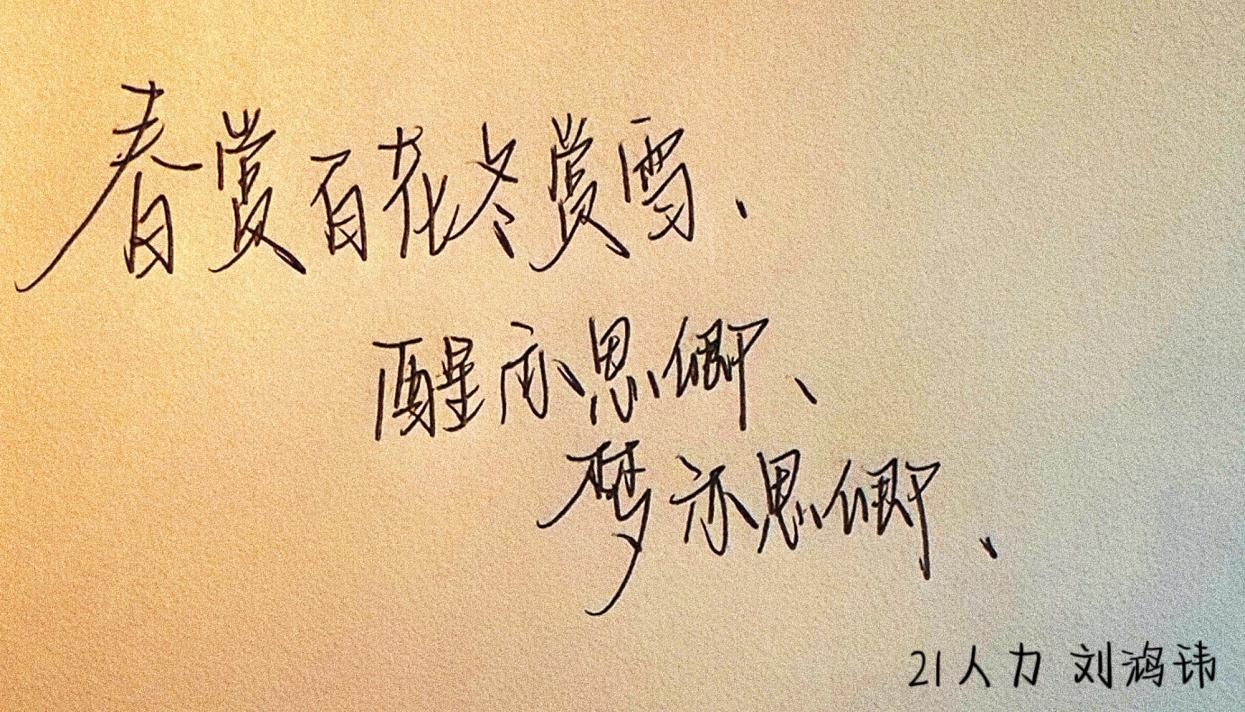 春赏百花冬赏雪、
醒亦思卿、
梦亦思卿、
21人力 刘鸿玮